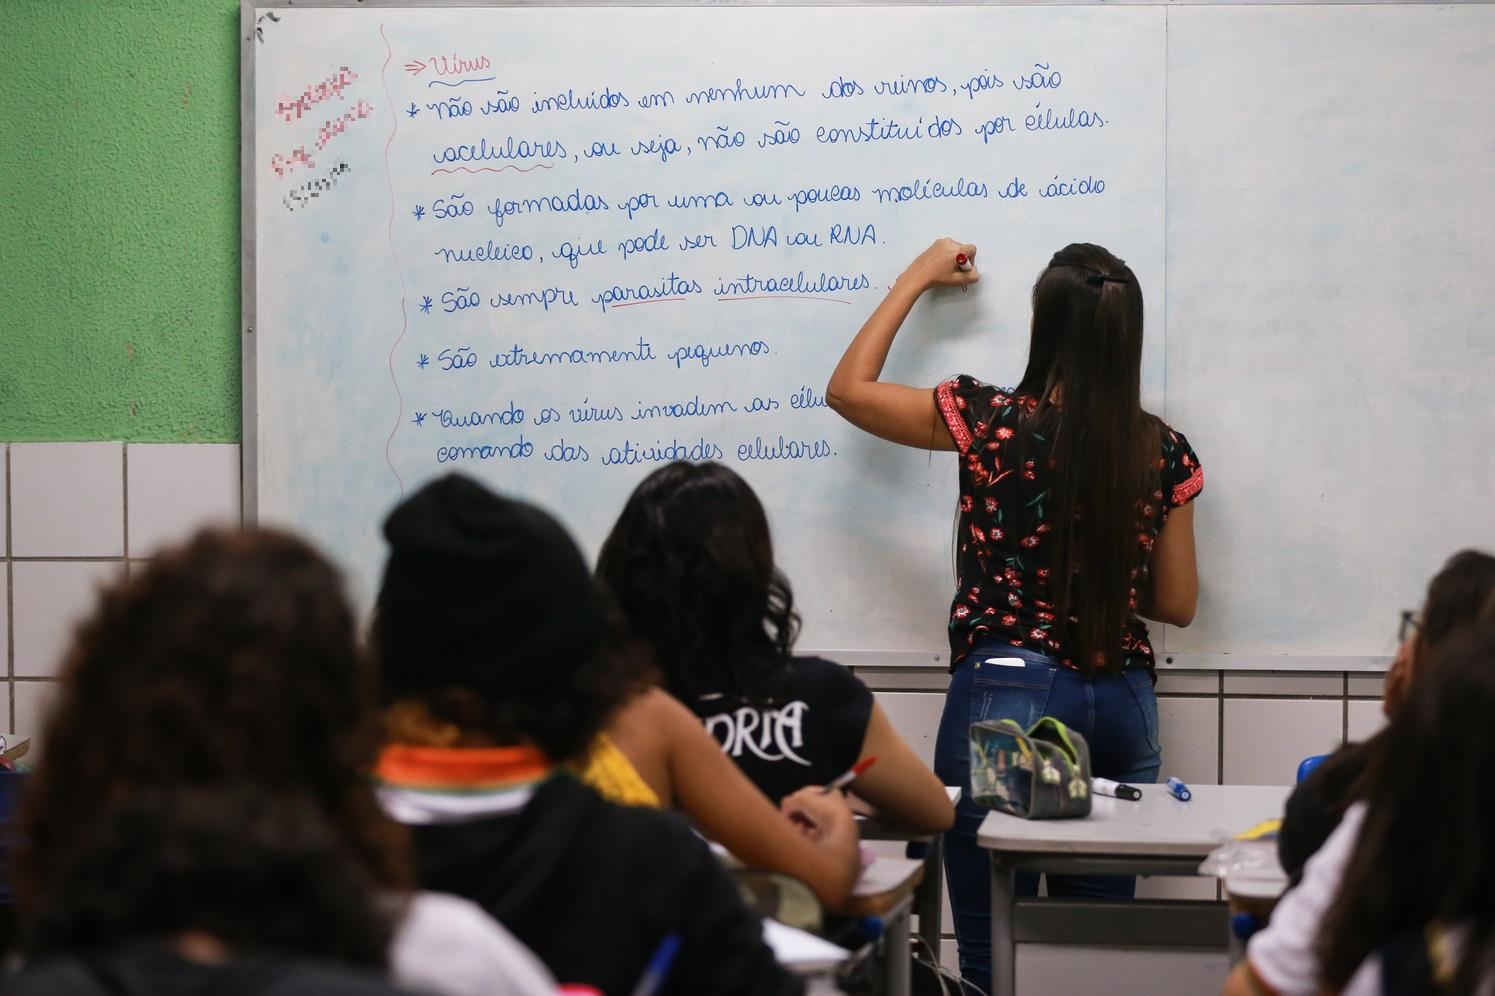 ⇒ Vírus
* Não são incluídos em nenhum dos reinos, pois são
acelulares, ou seja, não são constituídos por células.
* São formadas por uma ou poucas moléculas de ácido
nucleico, que pode ser DNA ou RNA.
* São sempre parasitas intracelulares.
* São extremamente pequenos.
* Quando os vírus invadem as célu
comando das atividades celulares.